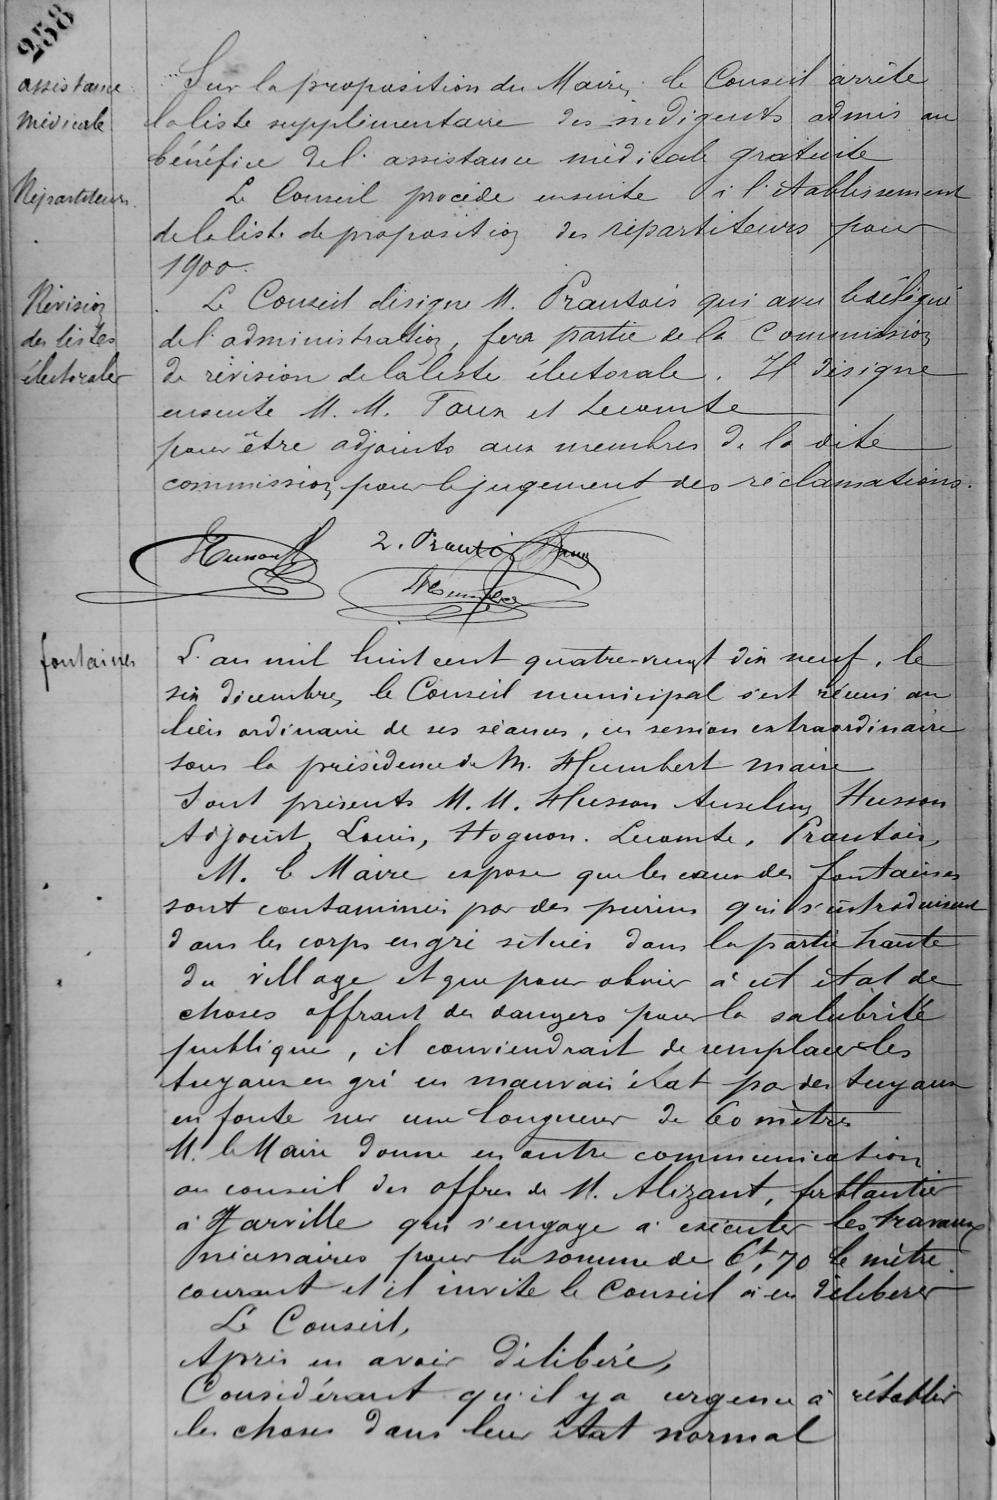 258
assistance
médicale
Sur la proposition du Maire, le Conseil arrête
la liste supplémentaire des indigents admis au
bénéfice de l'assistance médicale gratuite
Répartiteurs
Le Conseil procède ensuite à l'établissement
de la liste de proposition des répartiteurs pour
1900.
Révision
des listes
électorales
Le Conseil désigne M. Prautois qui avec le délégué
de l'administration, fera partie de la Commission
de révision de la liste électorale. Il désigne
ensuite M. M. Toux et Lecomte
pour être adjoints aux membres de la dite
commission pour le jugement des réclamations.
L. Prautois
fontaines
L'an mil huit cent quatre-vingt dix neuf, le
six décembre, le Conseil municipal s'est réuni au
lieu ordinaire de ses séances, en session extraordinaire
sous la présidence de M. Humbert maire
Sont présents M. M. Husson Anselme, Husson
Adjoint, Louis, Hognon. Lecomte, Prautois,
M. le Maire expose que les eaux des fontaines
sont contaminées par des purins qui s'introduisent
dans les corps en gré situés dans la partie haute
du village et que pour obvier à cet état de
choses offrant des dangers pour la salubrité
publique, il conviendrait de remplacer les
tuyaux en gré en mauvais état par des tuyaux
en fonte sur une longueur de 60 mètres
M. le Maire donne en outre communication
au conseil des offres de M. Alizant, ferblantier
à Harville qui s'engage à exécuter les travaux
nécessaires pour la somme de 6f,70 le mètre
courant et il invite le Conseil à en délibérer
Le Conseil,
Après en avoir délibéré,
Considérant qu'il y a urgence à rétablir
les choses dans leur état normal